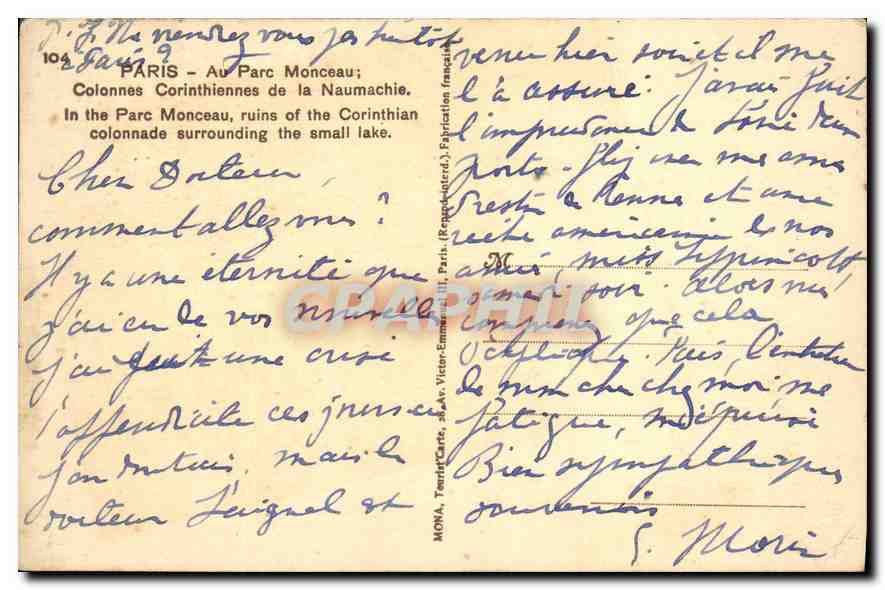 P.S. Ne viendrez vous pas bientôt
à Paris ?
104
PARIS - Au Parc Monceau;
Colonnes Corinthiennes de la Naumachie.
In the Parc Monceau, ruins of the Corinthian
colonnade surrounding the small lake.
Cher Docteur,
comment allez vous ?
Il y a une éternité que
j'ai eu de vos nouvelles
j'ai fait une crise
d'appendicite ces jours ci
j'en doutais, mais le
docteur Laignel est
MONA, Tourist Carte, 38, Av. Victor-Emmanuel III, Paris. (Reprod. interd.). Fabrication française
venu hier soir et il me
l'a assuré. J'avais fait
l'imprudence de
ports.
de Rennes et une
américaine de nos
M
amies, miss Lippincott,
samedi soir. alors vous
comprenez que cela
s'explique. Puis, l'entretien
de mon cher chez moi me
fatigue, m'épuise
Bien sympathiques
souvenirs
G. Morin
CPAPHIL